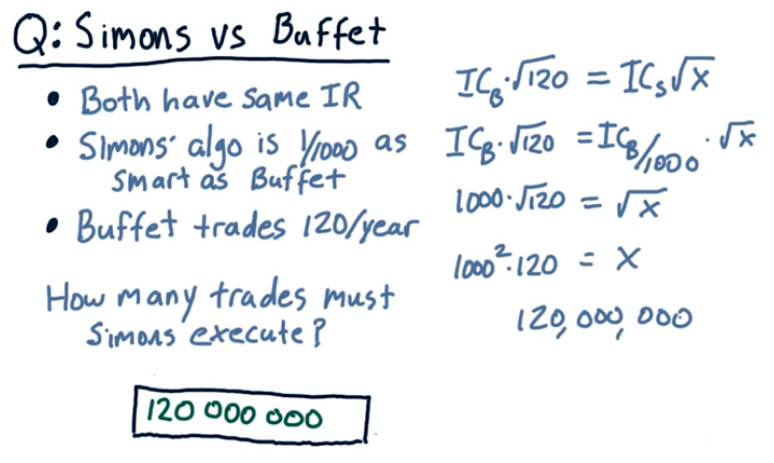 Q: Simons vs Buffet
• Both have same IR
• Simons' algo is 1/1000 as
smart as Buffet
• Buffet trades 120/year
How many trades must
Simons execute?
120 000 000
IC_B·√120 = IC_S√x
IC_B·√120 = IC_B/1000·√x
1000·√120 = √x
1000²·120 = x
120,000,000